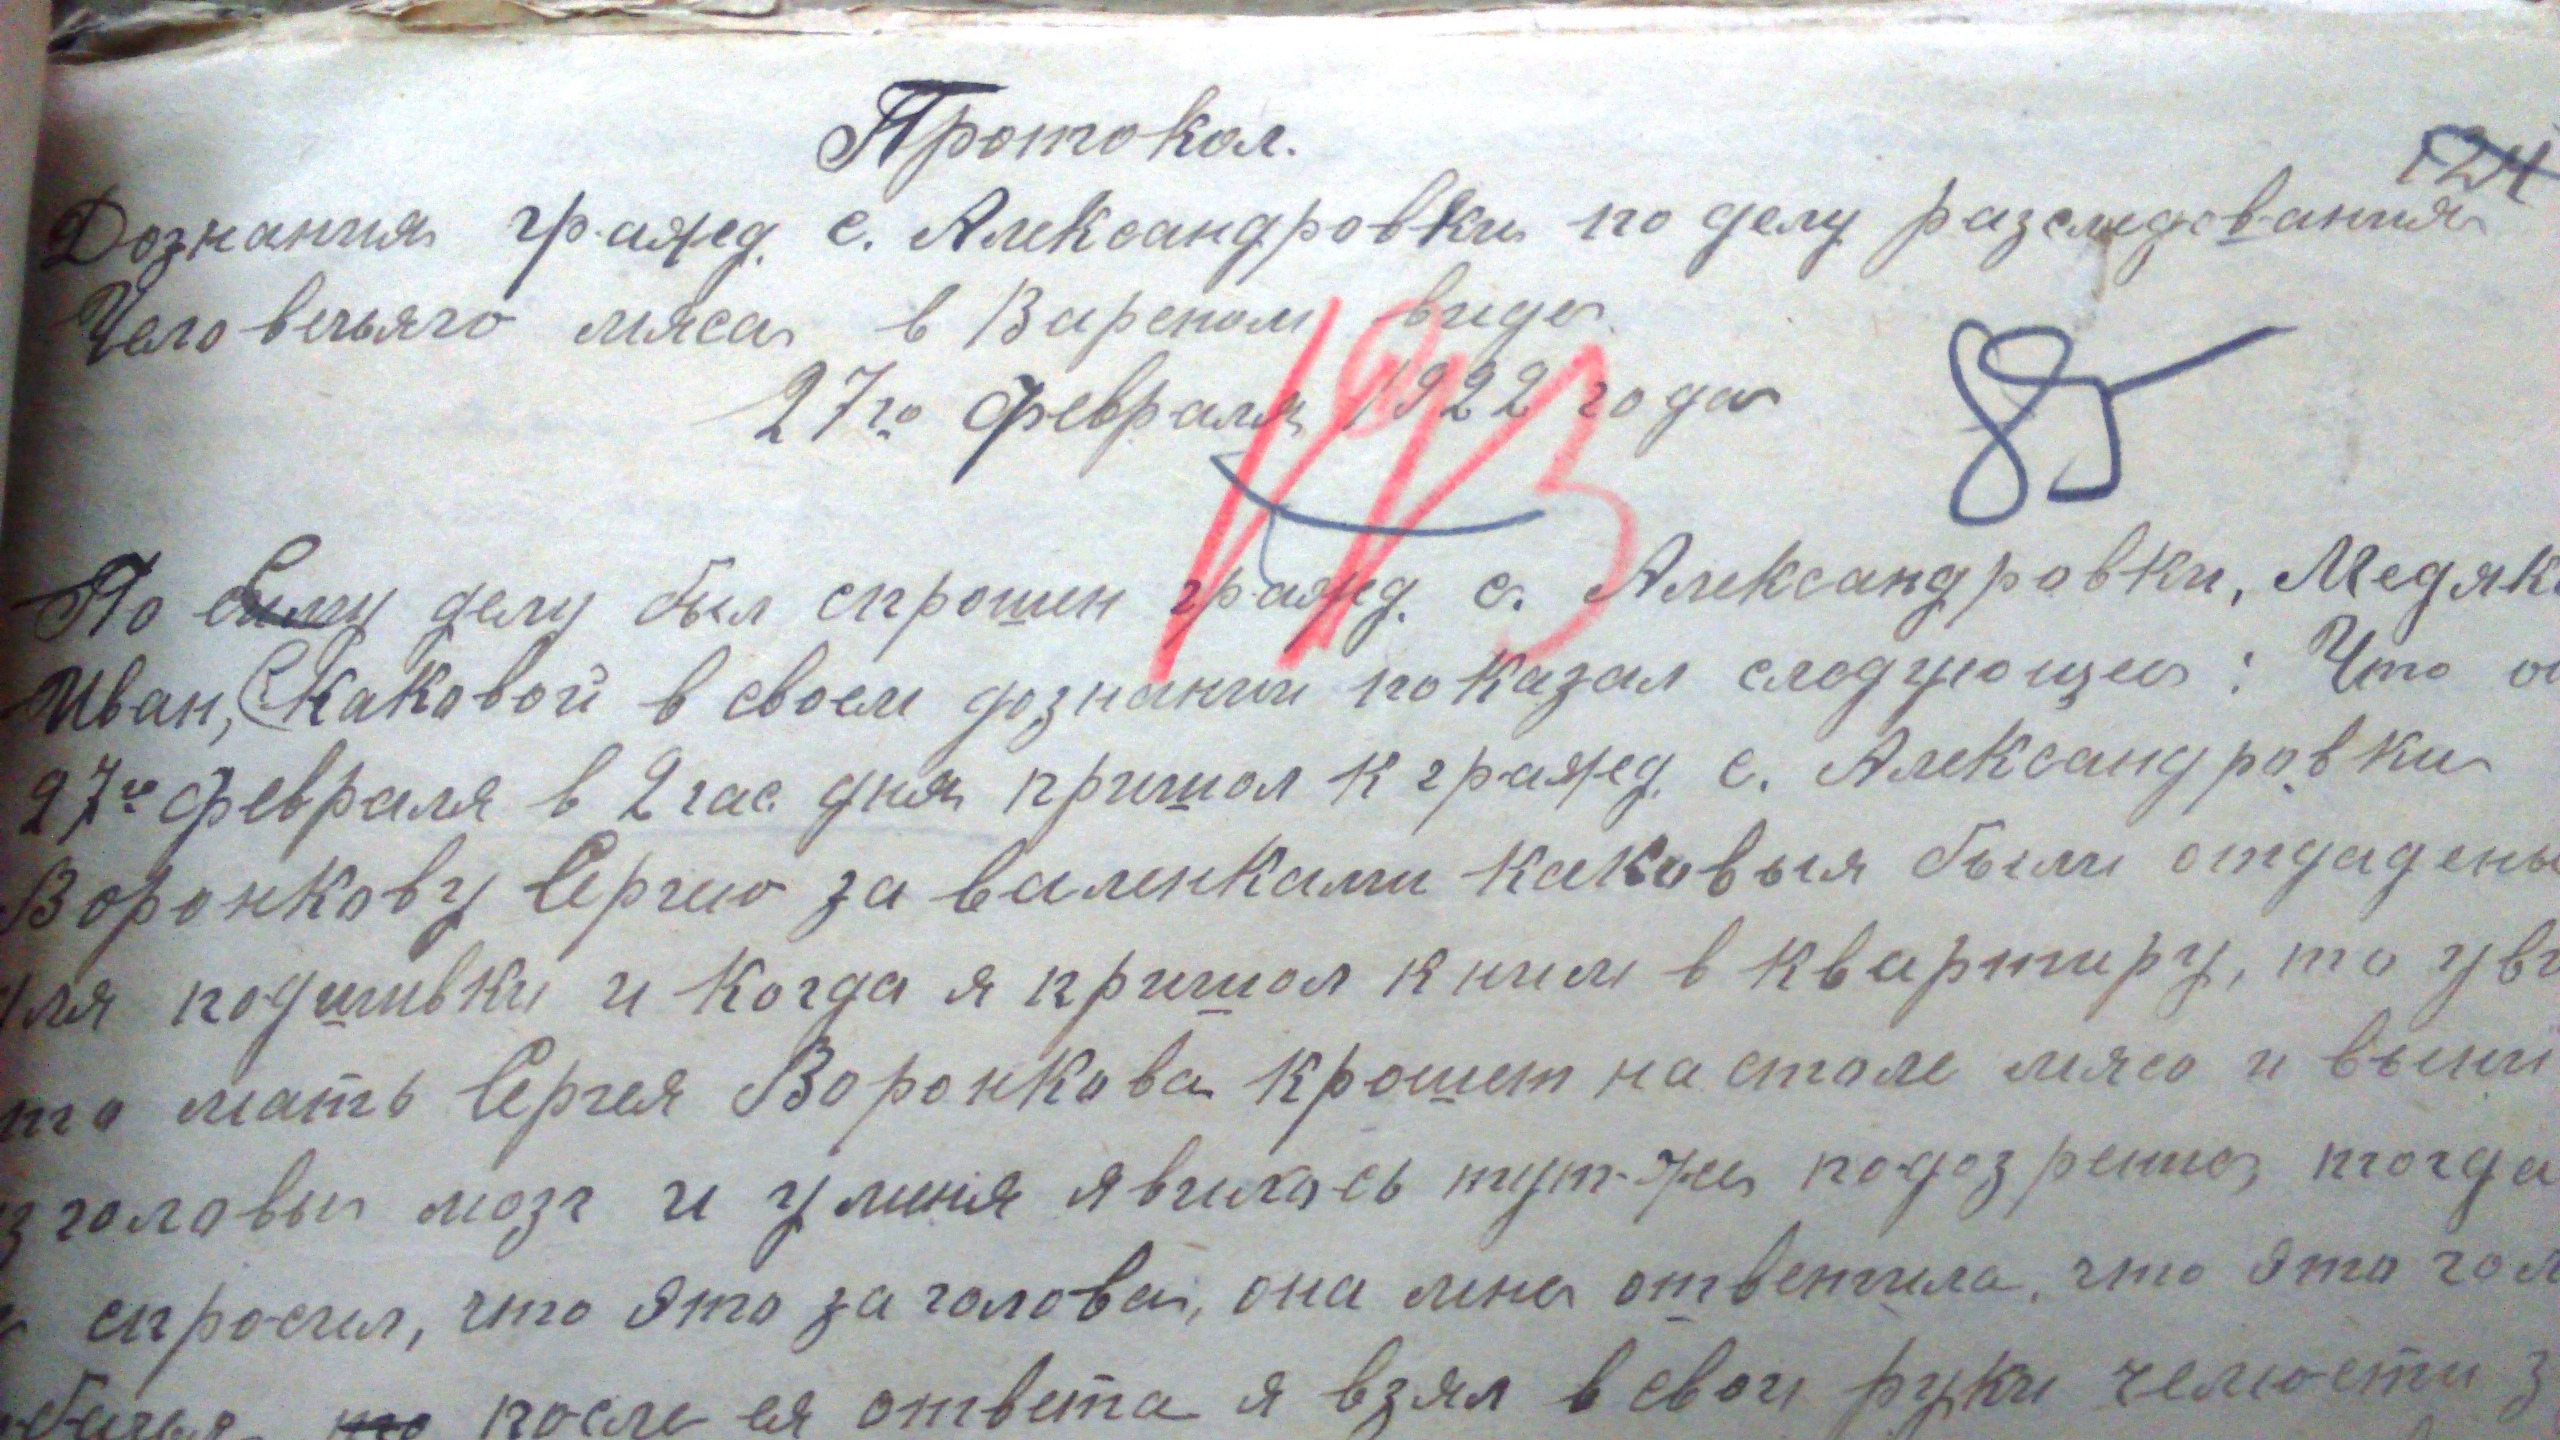 Протокол.
124
Дознания гражд. с. Александровки по делу разследования
Человечьяго мяса в Вареном виде
27го февраля 1922 года
193
85
По сему делу был спрошен гражд. с. Александровки, Медяк
Иван, Каковой в своем дознании показал следующее: Что
27го февраля в 2 час. дня пришол к гражд. с. Александровки
Воронкову Сергею за валенками каковыя были отдадены
для подшивки и когда я пришол к ним в квартиру, то уви
что мать Сергея Воронкова крошет на столе мясо и выни
из головы мозг и у миня явилось тут-же подозрение, тогда
я спросил, что это за голова, она мне ответила, что это гол
собачья, то после ея ответа я взял в свои руки челюсти з